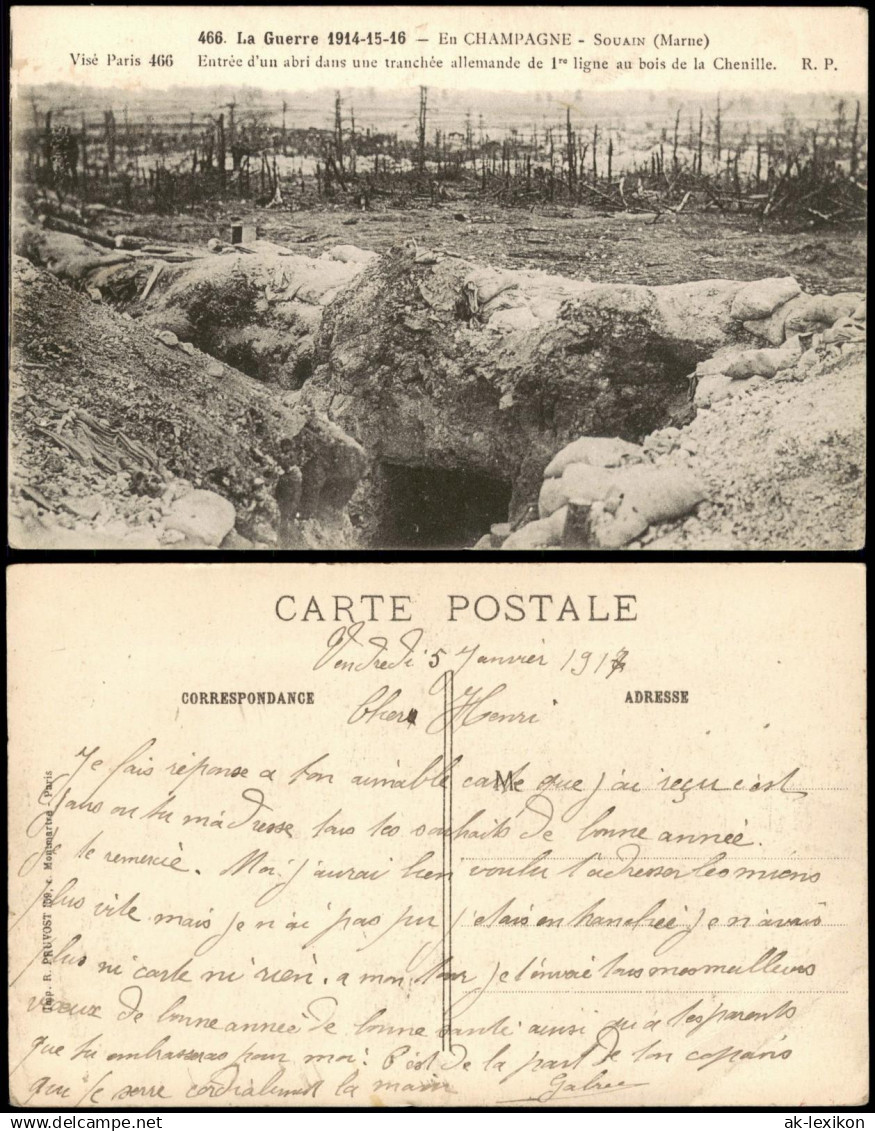 466. La Guerre 1914-15-16 — En CHAMPAGNE - SOUAIN (Marne)
Visé Paris 466 Entrée d'un abri dans une tranchée allemande de 1re ligne au bois de la Chenille. R. P.
CARTE POSTALE
Vendredi 5 Janvier 1917
CORRESPONDANCE ADRESSE
Cher Henri
Je fais réponse a ton aimable carte que j'ai reçu c'est
dans ou tu m'adresse tous tes souhaits de bonne année.
Je te remercie. Moi j'aurai bien voulu t'adresser les miens
plus vite mais je n'ai pas pu j'étais en tranchée je n'avais
plus ni carte ni rien. a mon tour je t'envoie tous mes meilleurs
vœux de bonne année de bonne santé ainsi qu'a tes parents
que tu embrasseras pour moi. C'est de la part de ton copain
qui te serre cordialement la main
M
Imp. R. PRUVOST 159, r. Montmartre - Paris
ak-lexikon.com